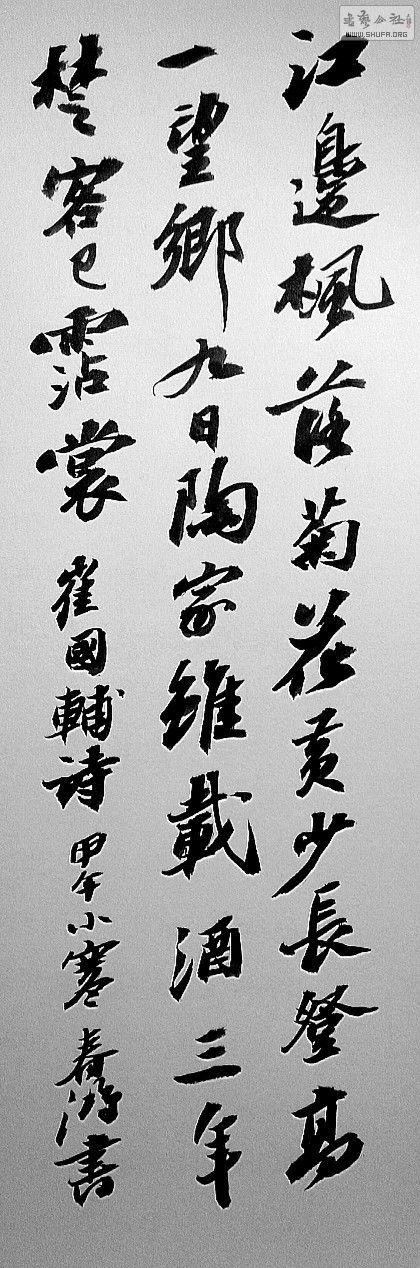 江邊枫落菊花黄少長登高
一望鄉九日陶家雖載酒三年
楚客已霑裳
崔國輔詩
甲午小寒春游書
书艺公社
WWW.SHUFA.ORG